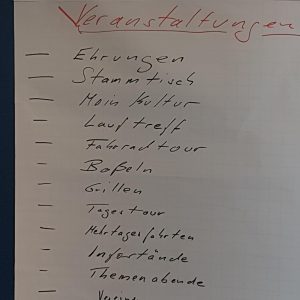 Veranstaltungen
- Ehrungen
- Stammtisch
- Moin Kultur
- Lauftreff
- Fahrradtour
- Boßeln
- Grillen
- Tagestour
- Mehrtagesfahrten
- Infostände
- Themenabende
-